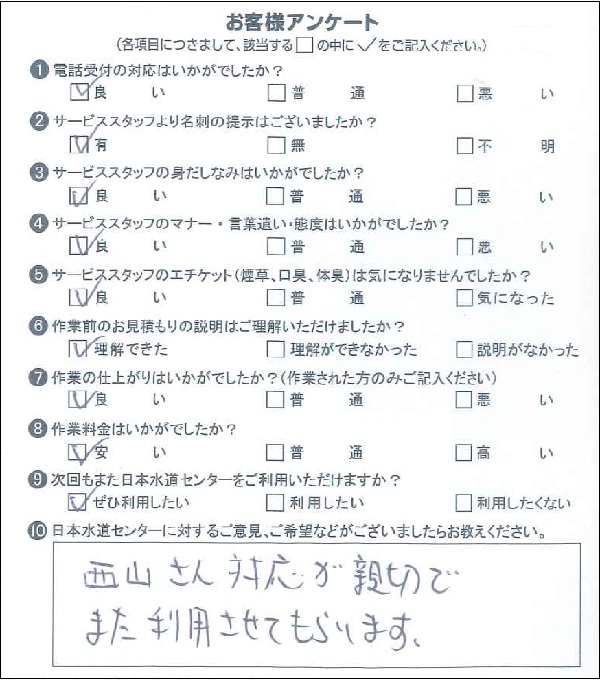 お客様アンケート
(各項目につきまして、該当する□の中に✓をご記入ください。)
❶ 電話受付の対応はいかがでしたか?
☑良い □普通 □悪い
❷ サービススタッフより名刺の提示はございましたか?
☑有 □無 □不明
❸ サービススタッフの身だしなみはいかがでしたか?
☑良い □普通 □悪い
❹ サービススタッフのマナー・言葉遣い・態度はいかがでしたか?
☑良い □普通 □悪い
❺ サービススタッフのエチケット(煙草、口臭、体臭)は気になりませんでしたか?
☑良い □普通 □気になった
❻ 作業前のお見積もりの説明はご理解いただけましたか?
☑理解できた □理解ができなかった □説明がなかった
❼ 作業の仕上がりはいかがでしたか?(作業された方のみご記入ください)
☑良い □普通 □悪い
❽ 作業料金はいかがでしたか?
☑安い □普通 □高い
❾ 次回もまた日本水道センターをご利用いただけますか?
☑ぜひ利用したい □利用したい □利用したくない
❿ 日本水道センターに対するご意見、ご希望などがございましたらお教えください。
西山さん対応が親切で
また利用させてもらいます、